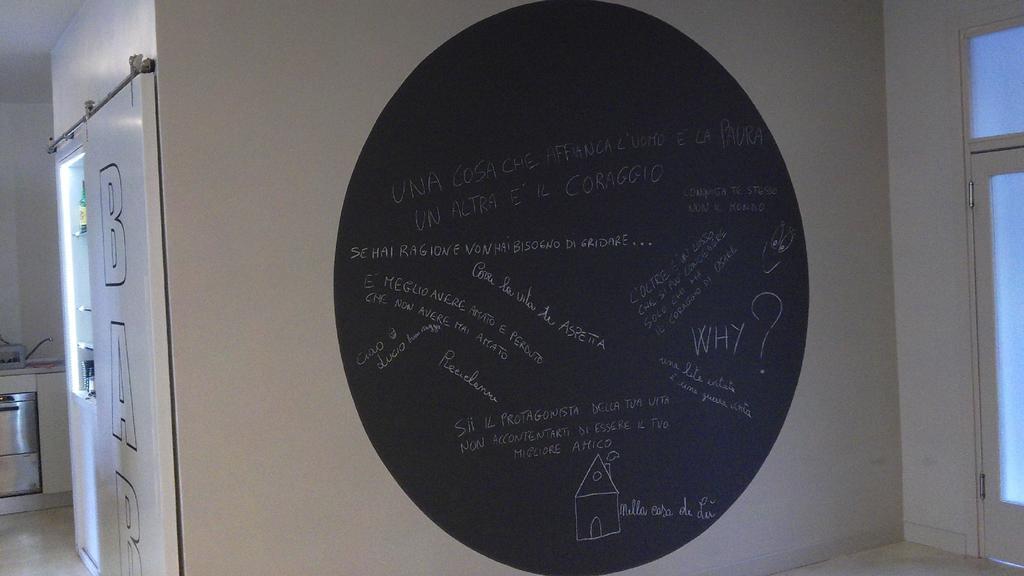 BAR
UNA COSA CHE AFFIANCA L'UOMO E LA PAURA
UN ALTRA E' IL CORAGGIO
CONQUISTA TE STESSO
NON IL MONDO
SE HAI RAGIONE NON HAI BISOGNO DI GRIDARE...
Corri la vita ti ASPETTA
E' MEGLIO AVERE AMATO E PERDUTO
CHE NON AVERE MAI AMATO
CIAO
LUCIO
L'OLTRE E' UN LUOGO
CHE SI PUÒ CONOSCERE
SOLO CHI HA
IL CORAGGIO DI OSARE
WHY?
una lite evitata
è una guerra vinta
SII IL PROTAGONISTA DELLA TUA VITA
NON ACCONTENTARTI DI ESSERE IL TUO
MIGLIORE AMICO
Nella casa di Lù